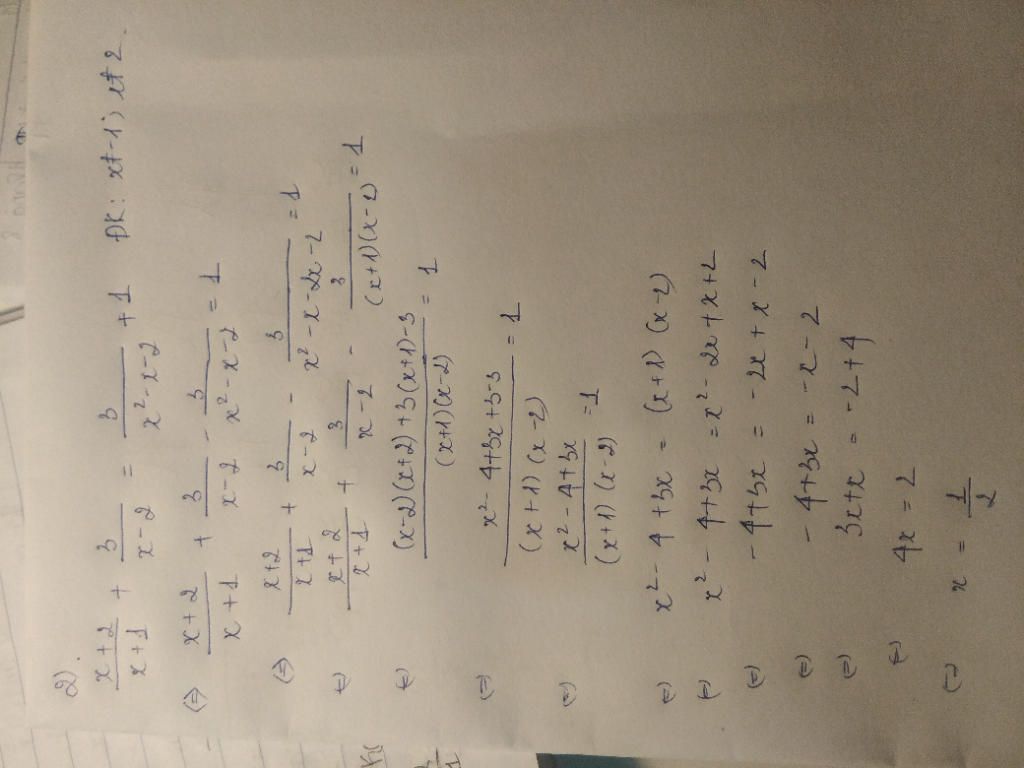 2).
x+2/x+1 + 3/x-2 = 3/x²-x-2 + 1 ĐK: x≠-1; x≠2.
(=) x+2/x+1 + 3/x-2 - 3/x²-x-2 = 1
(=) x+2/x+1 + 3/x-2 - 3/x²-x-2x-2 = 1
(=) x+2/x+1 + 3/x-2 - 3/(x+1)(x-2) = 1
(=) (x-2)(x+2)+3(x+1)-3/(x+1)(x-2) = 1
(=) x²-4+3x+3-3/(x+1)(x-2) = 1
(=) x²-4+3x/(x+1)(x-2) = 1
(=) x²-4+3x = (x+1)(x-2)
(=) x²-4+3x = x²-2x+x+2
(=) -4+3x = -2x+x-2
(=) -4+3x = -x-2
(=) 3x+x = -2+4
(=) 4x = 2
(=) x = 1/2